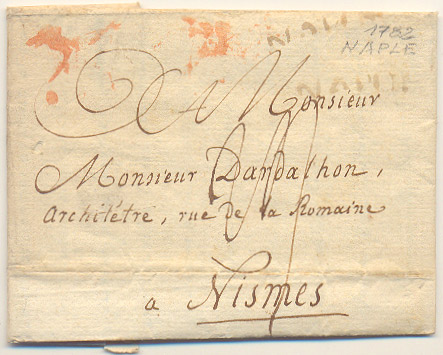 1782
NAPLE
Monsieur
Monsieur Dardalhon,
Architétre, rue de la Romaine
a Nismes